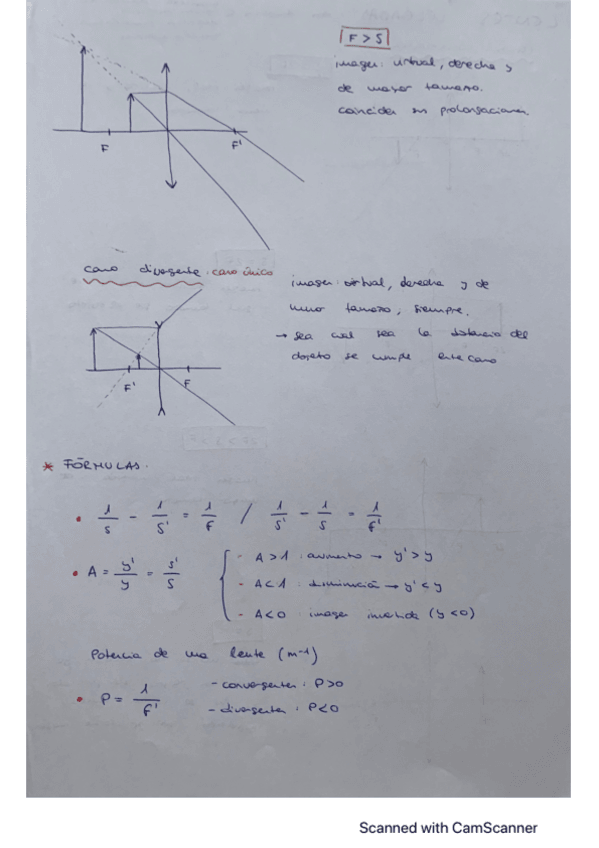 F > S
imagen: virtual, derecha y
de mayor tamaño.
coinciden sus prolongaciones.
F F'
caso divergente: caso único
imagen: virtual, derecha y de
menor tamaño, siempre.
→ sea cual sea la distancia del
objeto se cumple este caso
F' F
* FÓRMULAS.
• 1/s - 1/s' = 1/f / 1/s' - 1/s = 1/f'
• A = y'/y = s'/s
- A > 1 : aumento → y' > y
- A < 1 : disminución → y' < y
- A < 0 : imagen invertida (y < 0)
Potencia de una lente (m⁻¹)
• P = 1/f'
- convergentes : P>0
- divergentes : P<0
Scanned with CamScanner